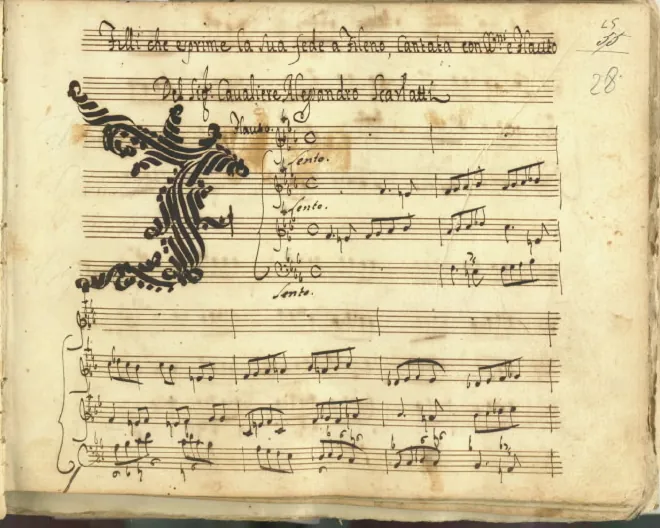 Filli che esprime la sua fede a Fileno, Cantata con VVni e Flauto
25
28
Del Sigr Cavaliere Alessandro Scarlatti
Flauto.
Lento.
Lento.
Lento.